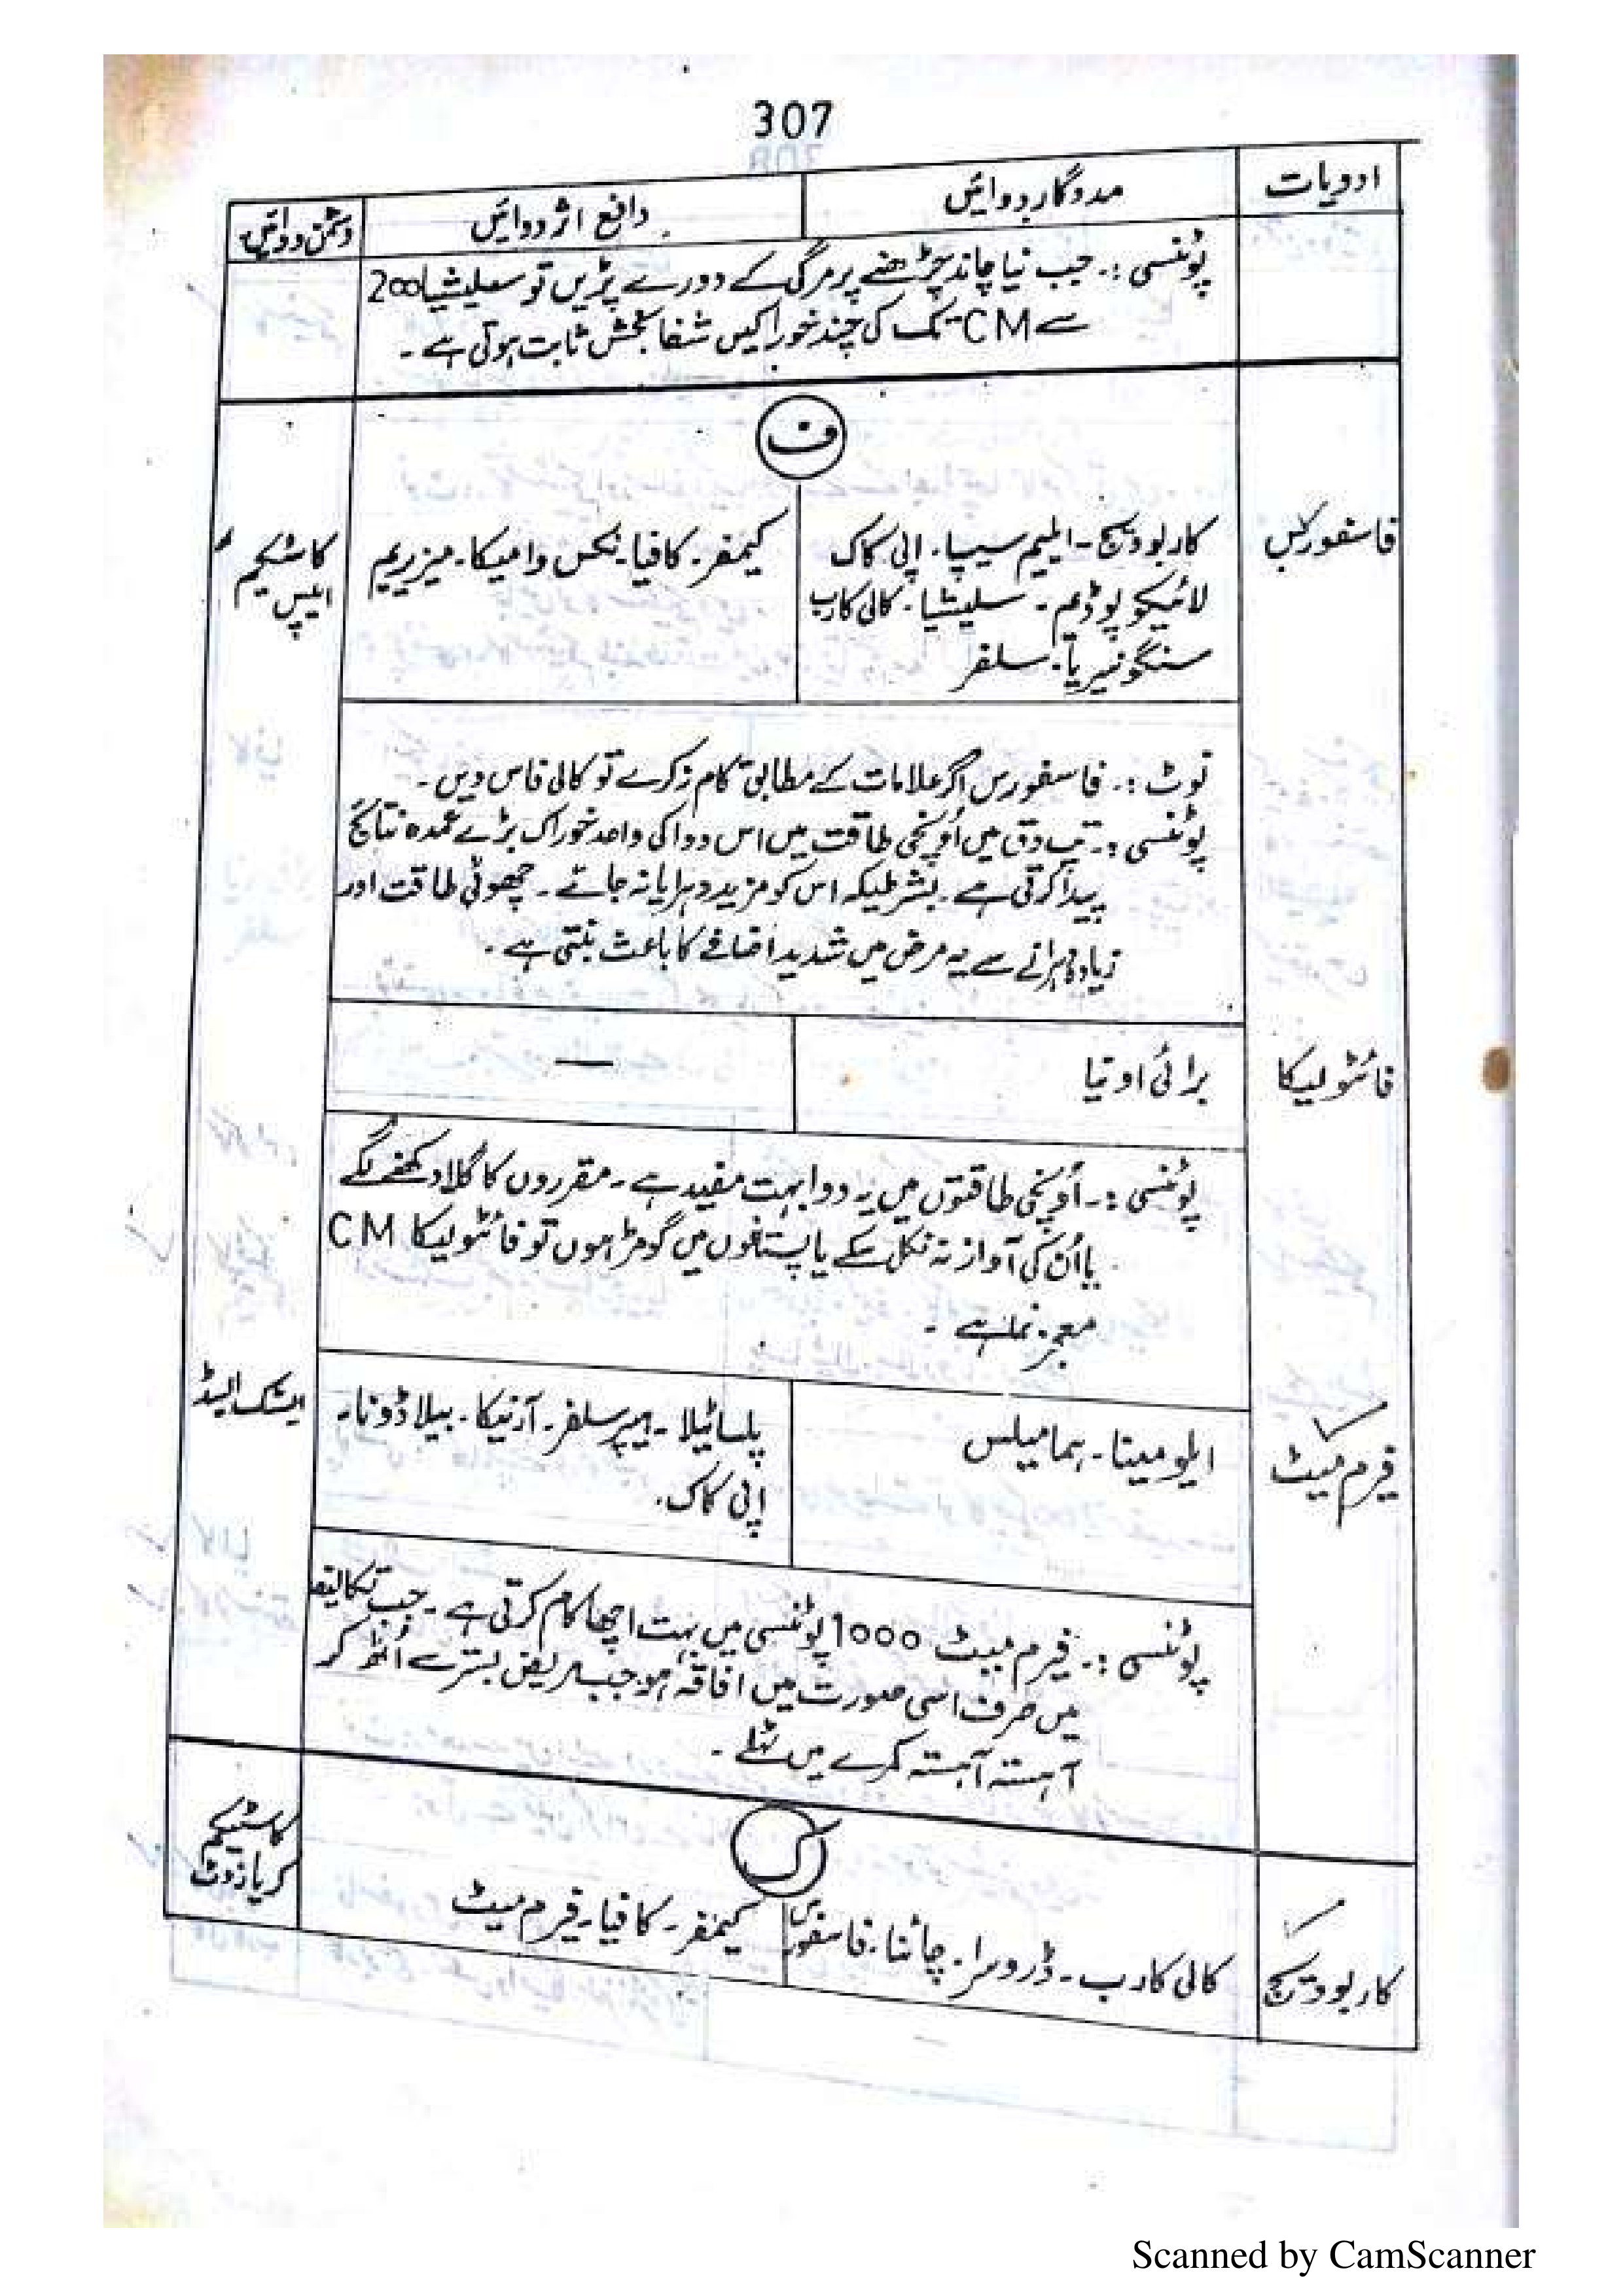 307
ادویات
مددگار دوائیں
دافع اثر دوائیں
دشمن دوائیں
پوٹنسی :۔ جب نیا چاند چڑھنے پر مرگی کے دورے پڑیں تو سیلیشیا 200
سے CM تک کی چند خوراکیں شفا بخش ثابت ہوتی ہے ۔
ف
فاسفورس
کاربوویج ۔ ایلیم سیپا ۔ اپی کاک
لائیکوپوڈیم ۔ سلیشیا ۔ کالی کارب
سنگونیریا ۔ سلفر
کیمفر ۔ کافیا ۔ نکس وامیکا ۔ میزریم
کاسٹیکم
ایپس
نوٹ :۔ فاسفورس اگر علامات کے مطابق کام نہ کرے تو کالی فاس دیں ۔
پوٹنسی :۔ تپ دق میں اُونچی طاقت میں اس دوا کی واحد خوراک بڑے عمدہ نتائج
پیدا کرتی ہے ۔ بشرطیکہ اس کو مزید دہرایا نہ جائے ۔ چھوٹی طاقت اور
زیادہ دہرانے سے یہ مرض میں شدید اضافے کا باعث بنتی ہے ۔
فائٹولیکا
برائی اونیا
—
پوٹنسی :۔ اُونچی طاقتوں میں یہ دوا بہت مفید ہے ۔ مقرروں کا گلا دکھنے لگے
یا اُن کی آواز نہ نکل سکے یا پستانوں میں گومڑ ہوں تو فائٹولیکا CM
معجز نما ہے ۔
فیرم میٹ
ایلومینا ۔ ہمامیلس
پلساٹیلا ۔ ہیپر سلفر ۔ آرنیکا ۔ بیلاڈونا ۔
اپی کاک ۔
ایسٹک ایسڈ
پوٹنسی :۔ فیرم میٹ 1000 پوٹنسی میں بہت اچھا کام کرتی ہے ۔ جب تکالیف
میں صرف اسی صورت میں افاقہ ہو جب مریض بستر سے اُٹھ کر
آہستہ آہستہ کمرے میں ٹہلے ۔
ک
کاربوویج
کالی کارب ۔ ڈروسرا ۔ چائنا ۔ فاسفورس
کیمفر ۔ کافیا ۔ فیرم میٹ
کاسٹیکم
کریازوٹ
Scanned by CamScanner